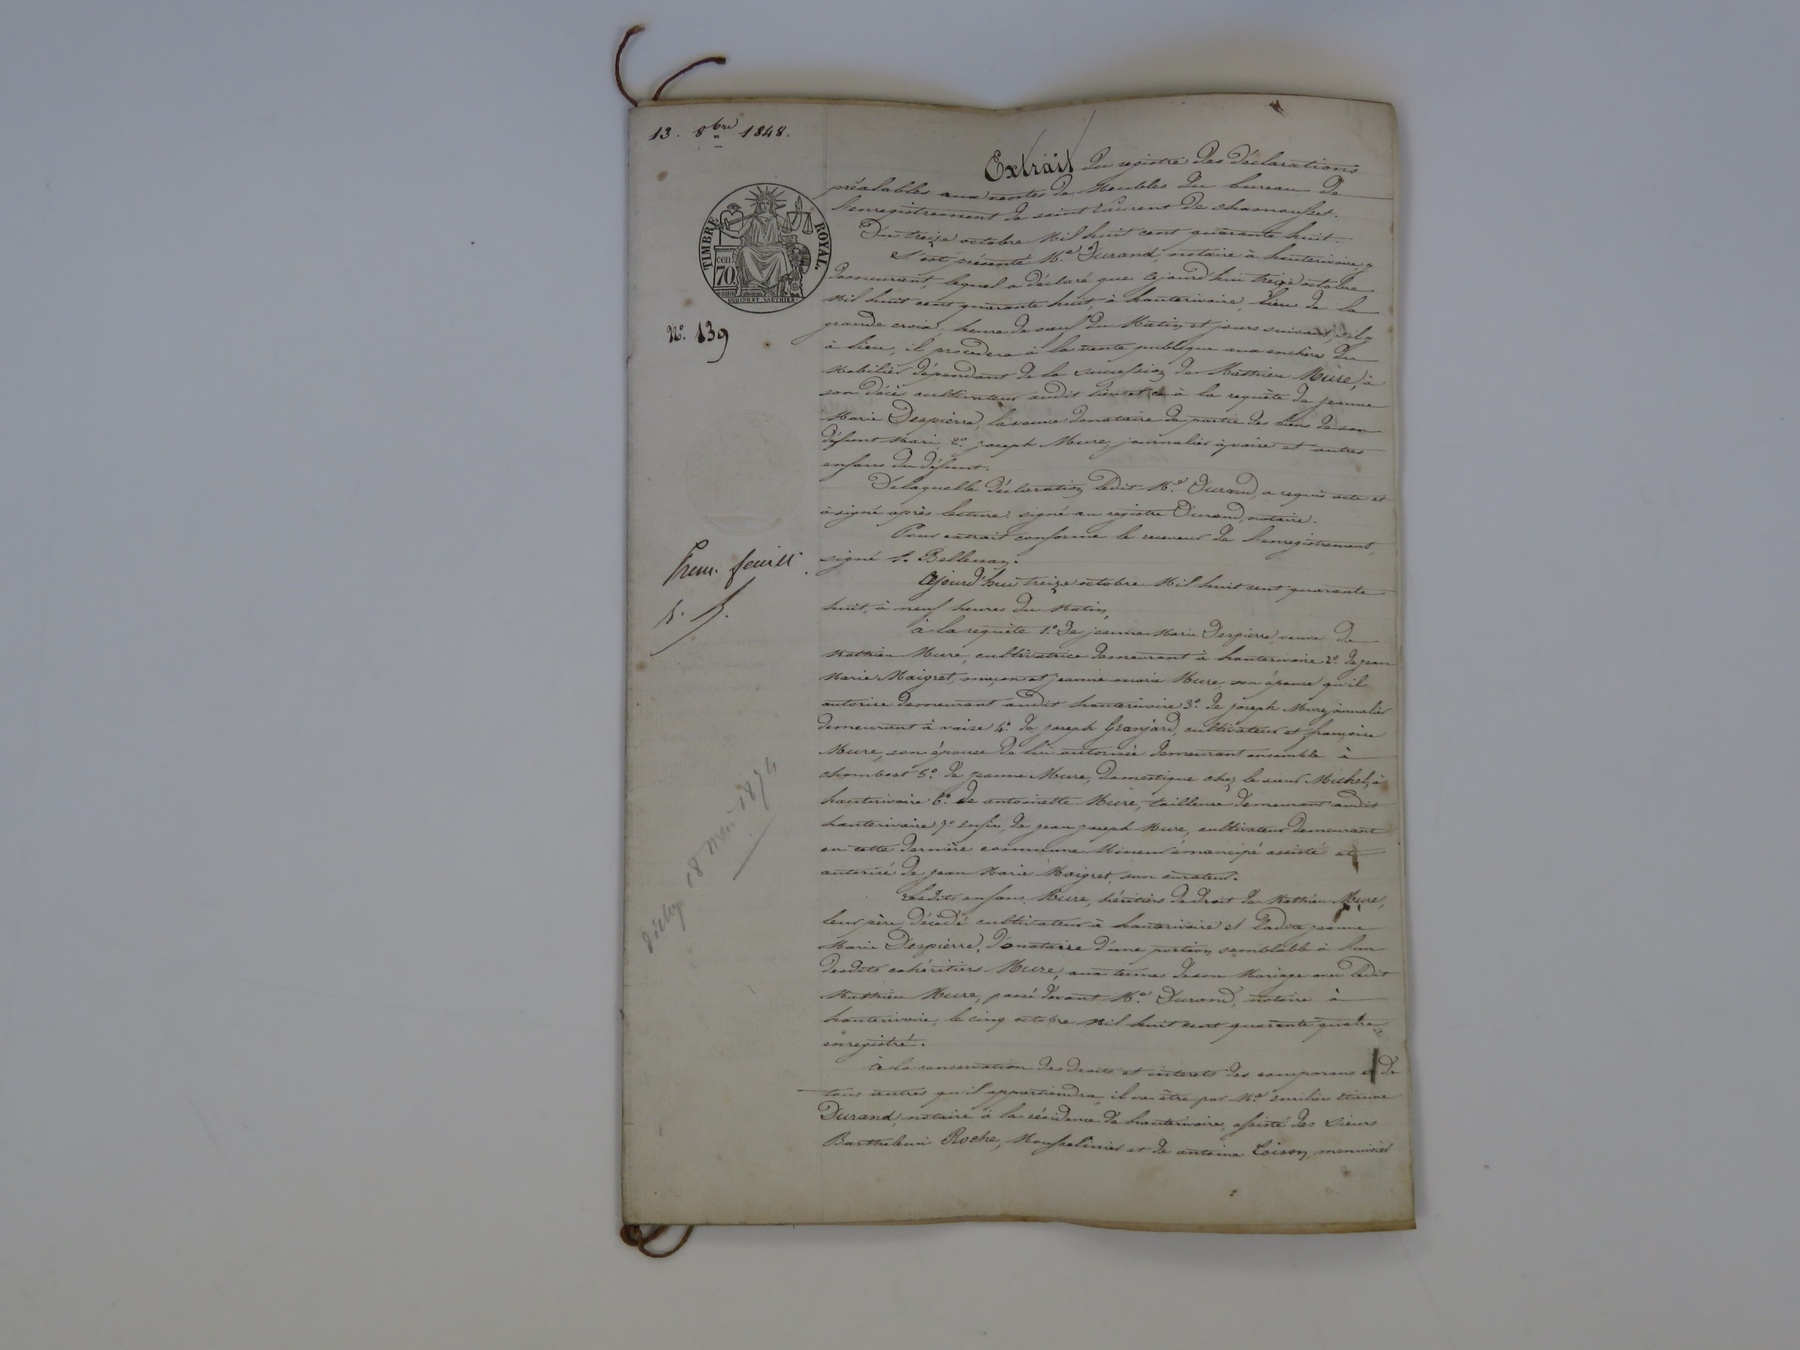 13. 8bre 1848.
TIMBRE ROYAL.
cen. 70
No. 139
Prem. feuille
Extrait du registre des déclarations
préalables aux ventes de Meubles du bureau de
l'enregistrement de saint Laurent de chamousset.
Du treize octobre Mil huit cent quarante huit.
s'est présenté Me. Durand, notaire à hauterivoire, y
demeurant, lequel a déclaré que cejourd'hui treize octobre
Mil huit cent quarante huit, à hauterivoire, lieu de la
grande croix, heure de neuf du Matin et jours suivant, s'il y
à lieu, il procedera à la vente publique aux enchères du
Mobilier dépendant de la succession de Mathieu Mure, à
son décès cultivateur audit lieu et ce à la requête de jeanne
Marie Despierre, la veuve donataire de partie des biens de son
défunt Mari, 2o. joseph Mure, journalier à vaise et autres
enfans du défunt.
De laquelle déclaration ledit Me. Durand, a requis acte et
à signé après lecture: signé au registre Durand, notaire.
Pour extrait conforme le receveur de l'enregistrement,
signé Bellenay.
Cejourd'hui treize octobre Mil huit cent quarante
huit, à neuf heures du Matin,
à la requête 1o. de jeanne Marie Despierre veuve de
Mathieu Mure, cultivatrice demeurant à hauterivoire 2o. de jean
Marie Maigret, maçon et jeanne marie Mure, son épouse qu'il
autorise demeurant audit hauterivoire 3o. de joseph Mure, journalier
demeurant à vaise 4o. de joseph Granjard, cultivateur et françoise
Mure, son épouse de lui autorisée demeurant ensemble à
chambost 5o. de jeanne Mure, domestique chez le sieur Michel, à
hauterivoire 6o. de antoinette Mure, tailleuse demeurant audit
hauterivoire 7o. enfin, de jean joseph Mure, cultivateur demeurant
en cette dernière commune Mineur émancipé assisté et
autorisé de jean Marie Maigret, son curateur.
Lesdits enfans Mure, héritiers de droit de Mathieu Mure,
leur père décédé cultivateur à hauterivoire et Ladite jeanne
Marie Despierre, donataire d'une portion semblable à l'un
desdits cohéritiers Mure, aux termes de son Mariage avec ledit
Mathieu Mure, passé devant Me. Durand, notaire à
hauterivoire, le cinq octobre Mil huit cent quarante quatre,
enregistré.
à la conservation des droits et interets des comparans et de
tous autres qu'il appartiendra, il va être par Me. emilien etienne
Durand, notaire à la résidence de hauterivoire, assisté des Sieurs
Barthelemi Roche, Mousselinier et de antoine Loison, menuisier
18 Mai 1874